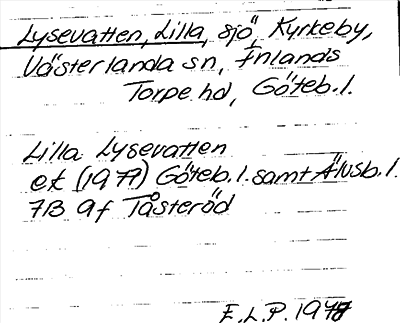 Lysevatten, Lilla, sjö, Kyrkeby,
Västerlanda sn, Inlands
Torpe hd, Göteb. l.
Lilla Lysevatten
ek (1977) Göteb. l. samt Älvsb. l.
7B 9f Tåsteröd
E.L.P. 1977